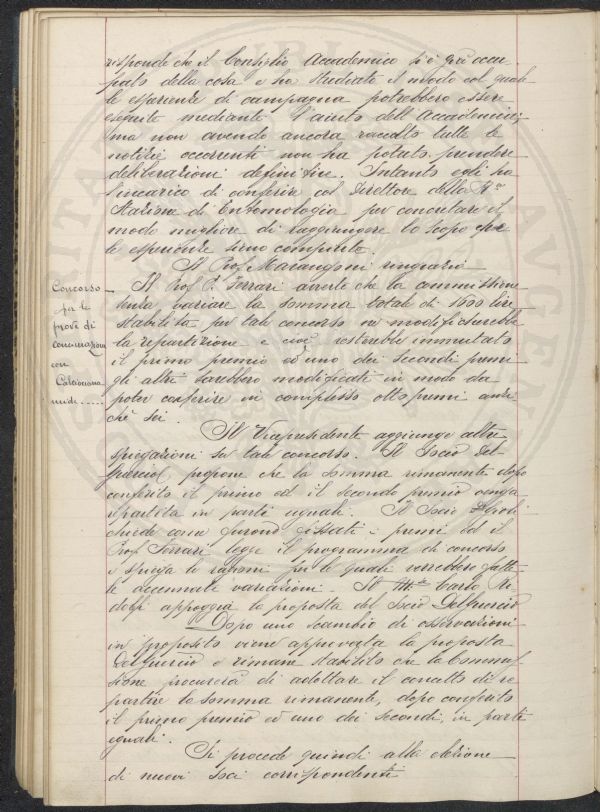 risponde che il Consiglio Accademico si è già occu-
pato della cosa e ha studiato il modo col quale
le esperienze di campagna potrebbero essere
eseguite mediante l'aiuto dell'Accademia;
ma non avendo ancora raccolto tutte le
notizie occorrenti non ha potuto prendere
deliberazioni definitive. Intanto egli ha
l'incarico di conferire col Direttore della R.
Stazione di Entomologia per concretare il
modo migliore di raggiungere lo scopo che
le esperienze sieno compiute.
Il Prof. Marangoni ringrazia.
Concorso
per le
prove di
concimazione
con
Calciociana-
mide
Il Prof. P. Ferrari avverte che la commissione
senza variare la somma totale di 1600 lire
stabilita per tale concorso ne modificherebbe
la repartizione e cioè resterebbe immutato
il primo premio ed uno dei secondi premi
gli altri sarebbero modificati in modo da
poter conferire in complesso otto premi anzi
chè sei.
Il Vicepresidente aggiunge altre
spiegazioni su tale concorso. Il Socio Del-
guercio propone che la somma rimanente dopo
conferito il primo ed il secondo premio venga
repartita in parti uguali. Il Socio
chiede come furono fissati i premi ed il
Prof. Ferrari legge il programma di concorso
e spiega le ragioni per le quali verrebbero fatte
le accennate variazioni. Il Carlo Ri-
dolfi appoggia la proposta del Socio Delguercio
Dopo uno scambio di osservazioni
in proposito viene approvata la proposta
Delguercio e rimane stabilito che la Commis-
sione procurerà di adottare il concetto di re-
partire la somma rimanente, dopo conferito
il primo premio ed uno dei secondi, in parti
eguali.
Si procede quindi alla elezione
di nuovi soci corrispondenti